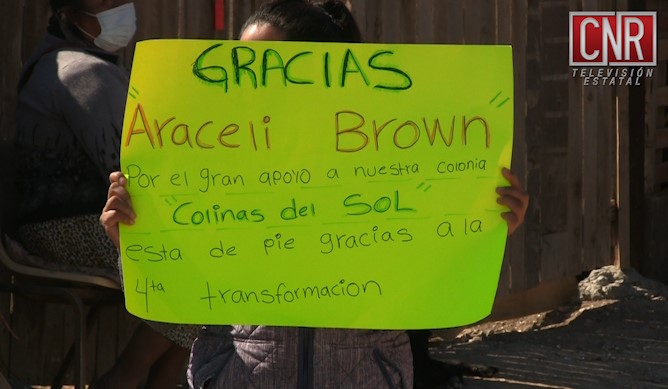 CNR
TELEVISIÓN
ESTATAL
GRACIAS
"Araceli Brown"
Por el gran apoyo a nuestra colonia
"Colinas del SOL"
esta de pie gracias a la
4ta transformacion